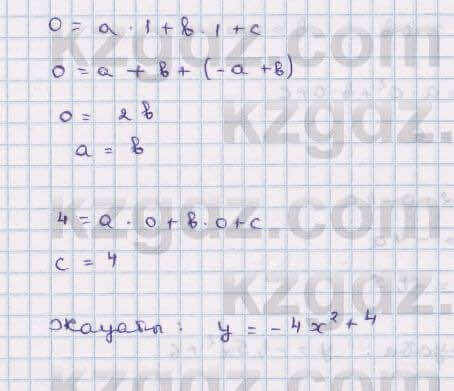 0 = a · 1 + b · 1 + c
0 = a + b + (-a + b)
0 = 2b
a = b
4 = a · 0 + b · 0 + c
c = 4
Жауабы: y = -4x² + 4
kzgdz.com
kzgdz.com
kzgdz.com
kzgdz.com